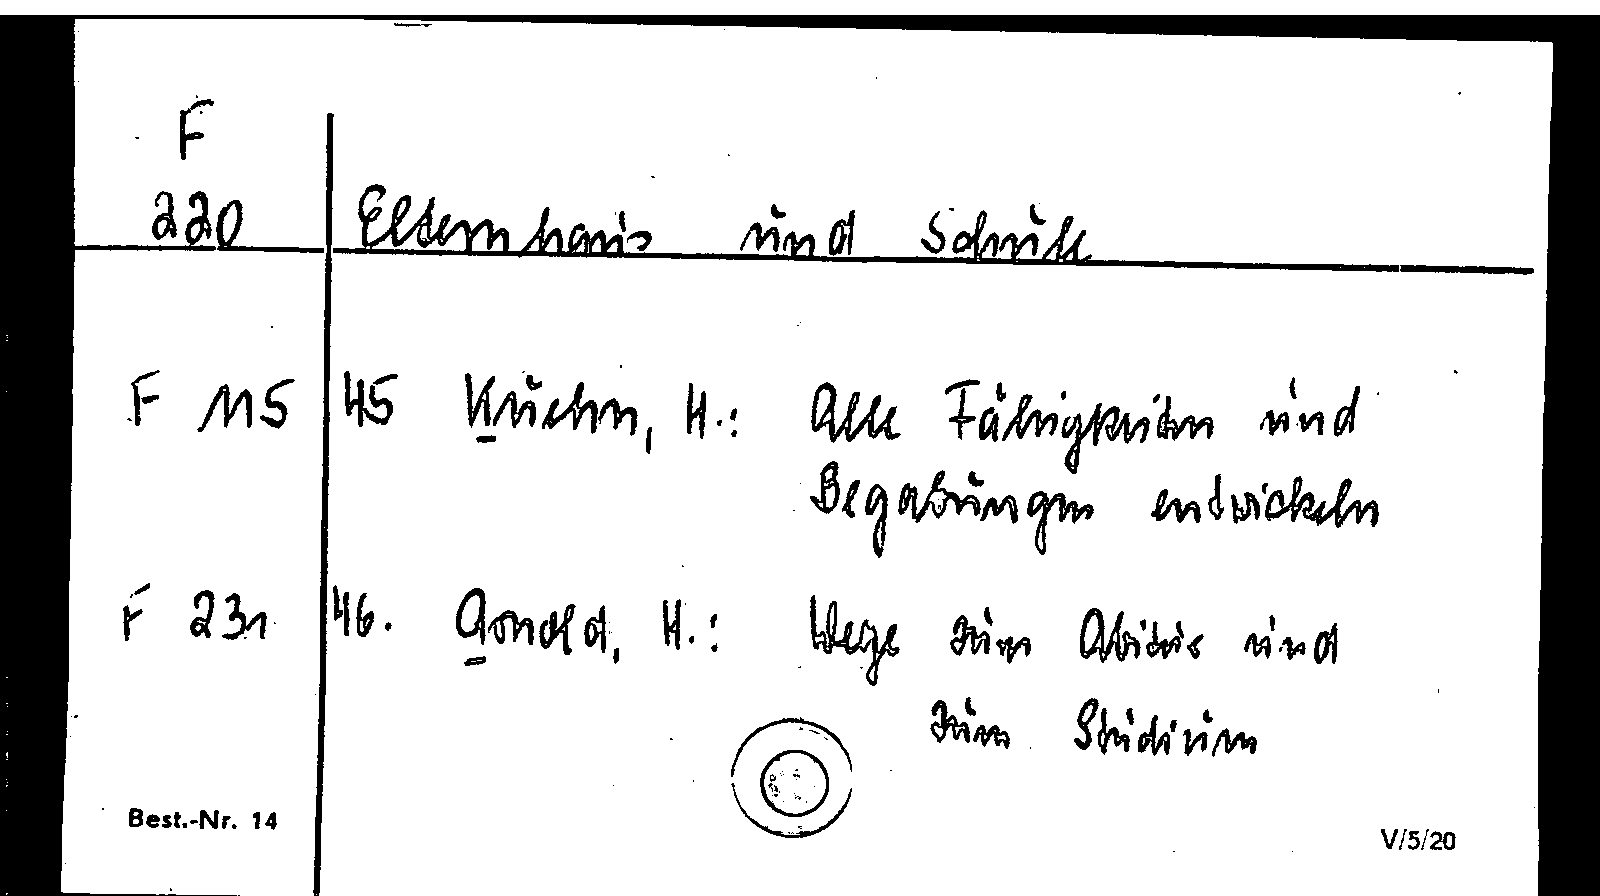 F
220 Elternhaus und Schule
F 115 45 Kuehn, H.: Alle Fähigkeiten und
Begabungen entwickeln
F 231 46. Arnold, H.: Wege zum Abitur und
zum Studium
Best.-Nr. 14
V/5/20